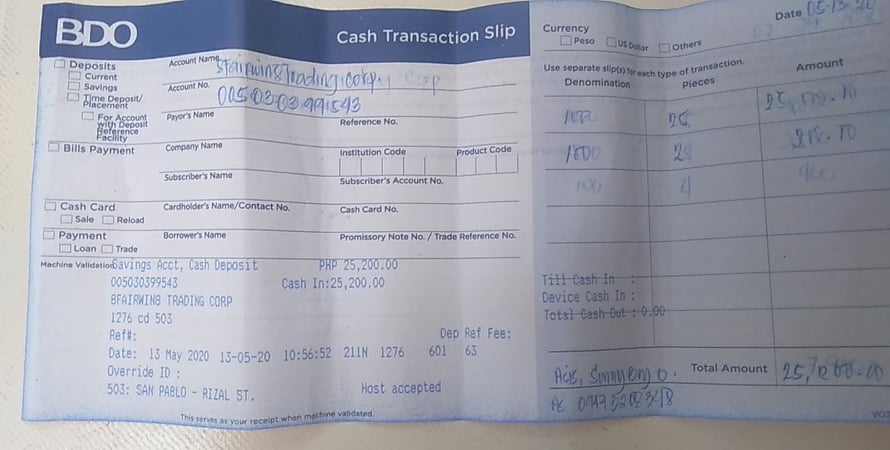 BDO
Cash Transaction Slip
Deposits
Current
Savings
Time Deposit/
Placement
For Account
with Deposit
Reference
Facility
Account Name
Trading corp
Account No.
Payor's Name
Reference No.
Bills Payment
Company Name
Institution Code
Product Code
Subscriber's Name
Subscriber's Account No.
Cash Card
Sale
Reload
Cardholder's Name/Contact No.
Cash Card No.
Payment
Loan
Trade
Borrower's Name
Promissory Note No. / Trade Reference No.
Machine Validation
Savings Acct, Cash Deposit PHP 25,200.00
005030399543 Cash In:25,200.00
8FAIRWIN8 TRADING CORP
1276 cd 503
Ref#: Dep Ref Fee:
Date: 13 May 2020 13-05-20 10:56:52 211N 1276 601 63
Override ID :
503: SAN PABLO - RIZAL ST. Host accepted
This serves as your receipt when machine validated.
Date 05-13-20
Currency
Peso
US Dollar
Others
Use separate slip(s) for each type of transaction.
Denomination
Pieces
Amount
100 4
Till Cash In :
Device Cash In :
Total Cash Out : 0.00
Total Amount